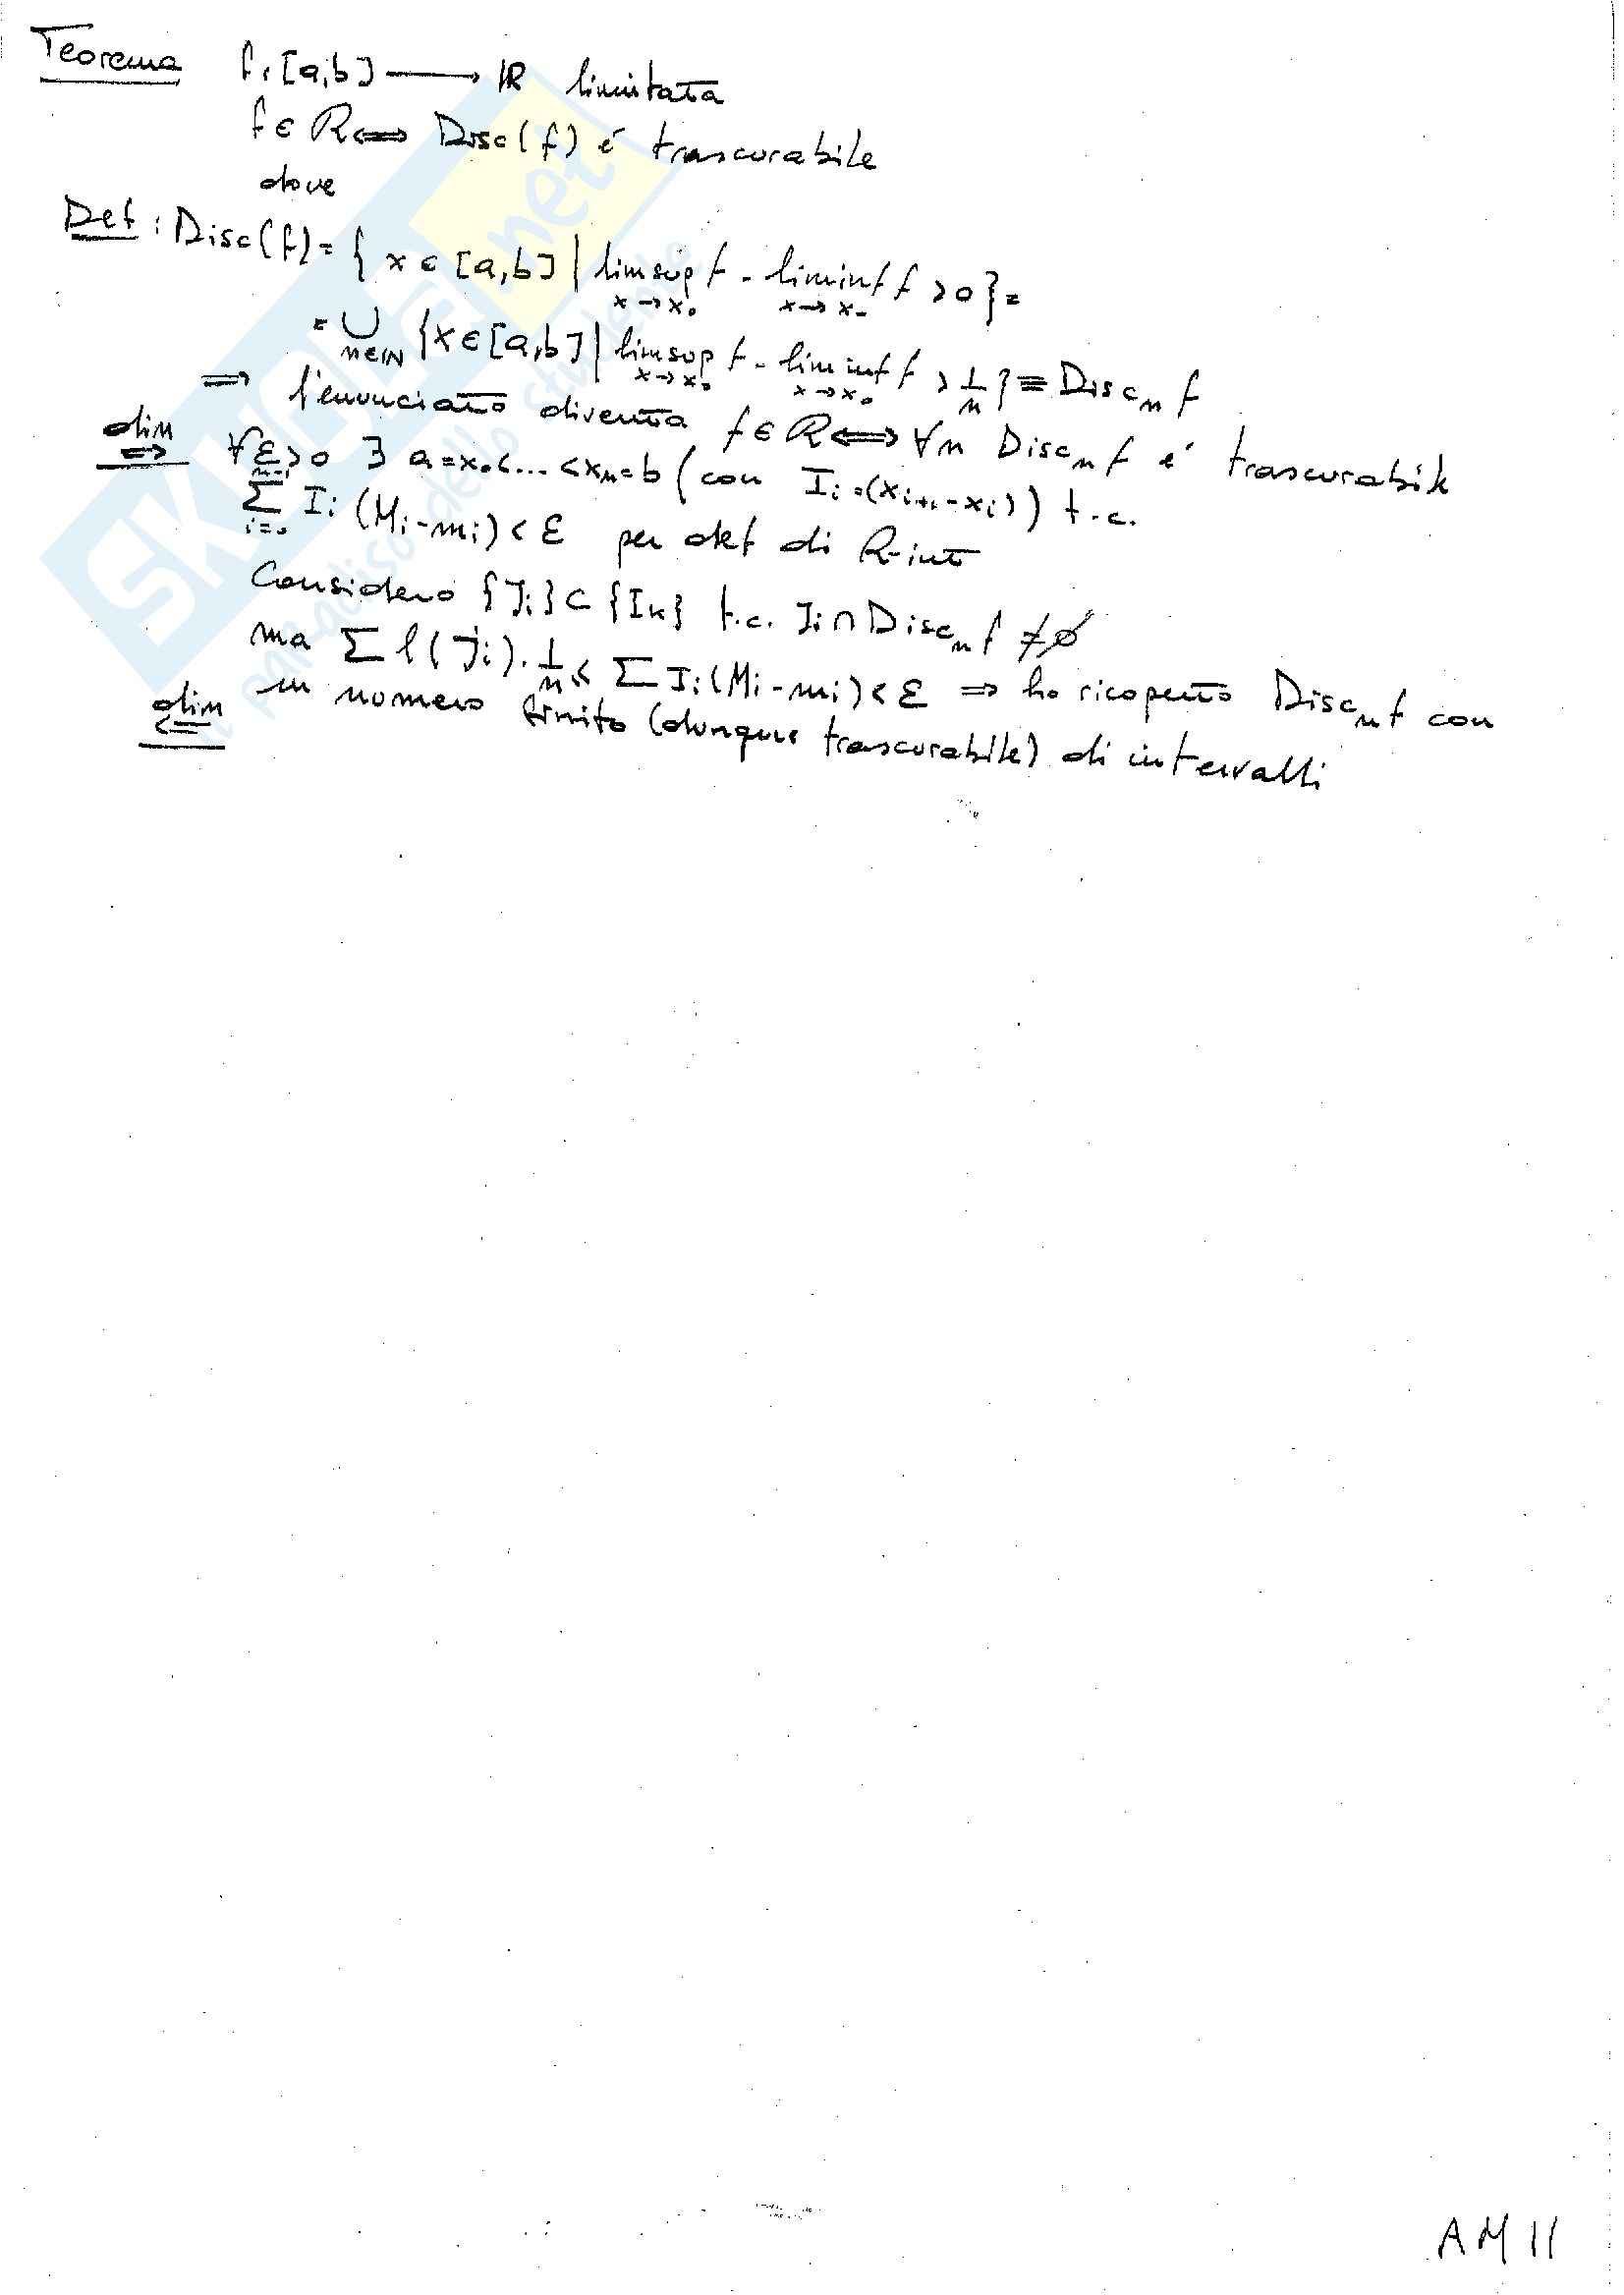 Teorema f: [a,b] → ℝ limitata
f ∈ R ⟺ Disc(f) é trascurabile
dove
Def: Disc(f) = { x ∈ [a,b] | limsup_{x→x₀} f - liminf_{x→x₀} f > 0 } =
= ⋃_{n∈ℕ} { x ∈ [a,b] | limsup_{x→x₀} f - liminf_{x→x₀} f > 1/n } ≡ Disc_n f
⟹ l'enunciato diventa f ∈ R ⟺ ∀n Disc_n f é trascurabile
dim ⟹ ∀ε>0 ∃ a=x₀<...<x_n=b (con I_i=(x_{i+1}-x_i)) t.c.
∑_{i=0}^{n-1} I_i (M_i-m_i) < ε per def di R-int
Considero {J_i} ⊂ {I_k} t.c. J_i ∩ Disc_n f ≠ ∅
ma ∑ l(J_i)·1/n < ∑ I_i (M_i-m_i) < ε ⟹ ho ricoperto Disc_n f con
un numero finito (dunque trascurabile) di intervalli
dim ⟸
SKUOLA.net
il paradiso dello studente
AM11